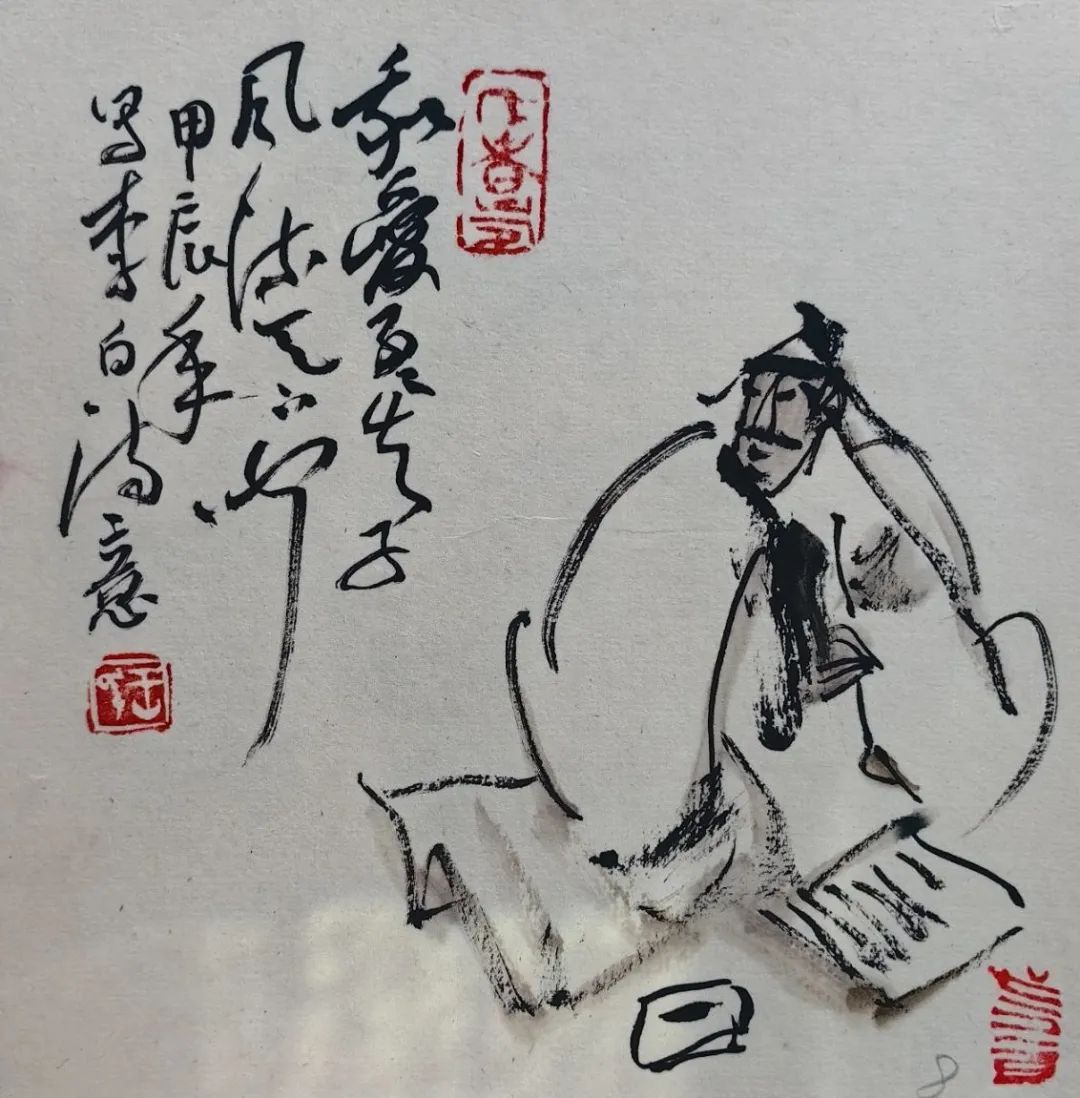 我爱孟夫子
风流天下闻
甲辰年
写李白诗意
8